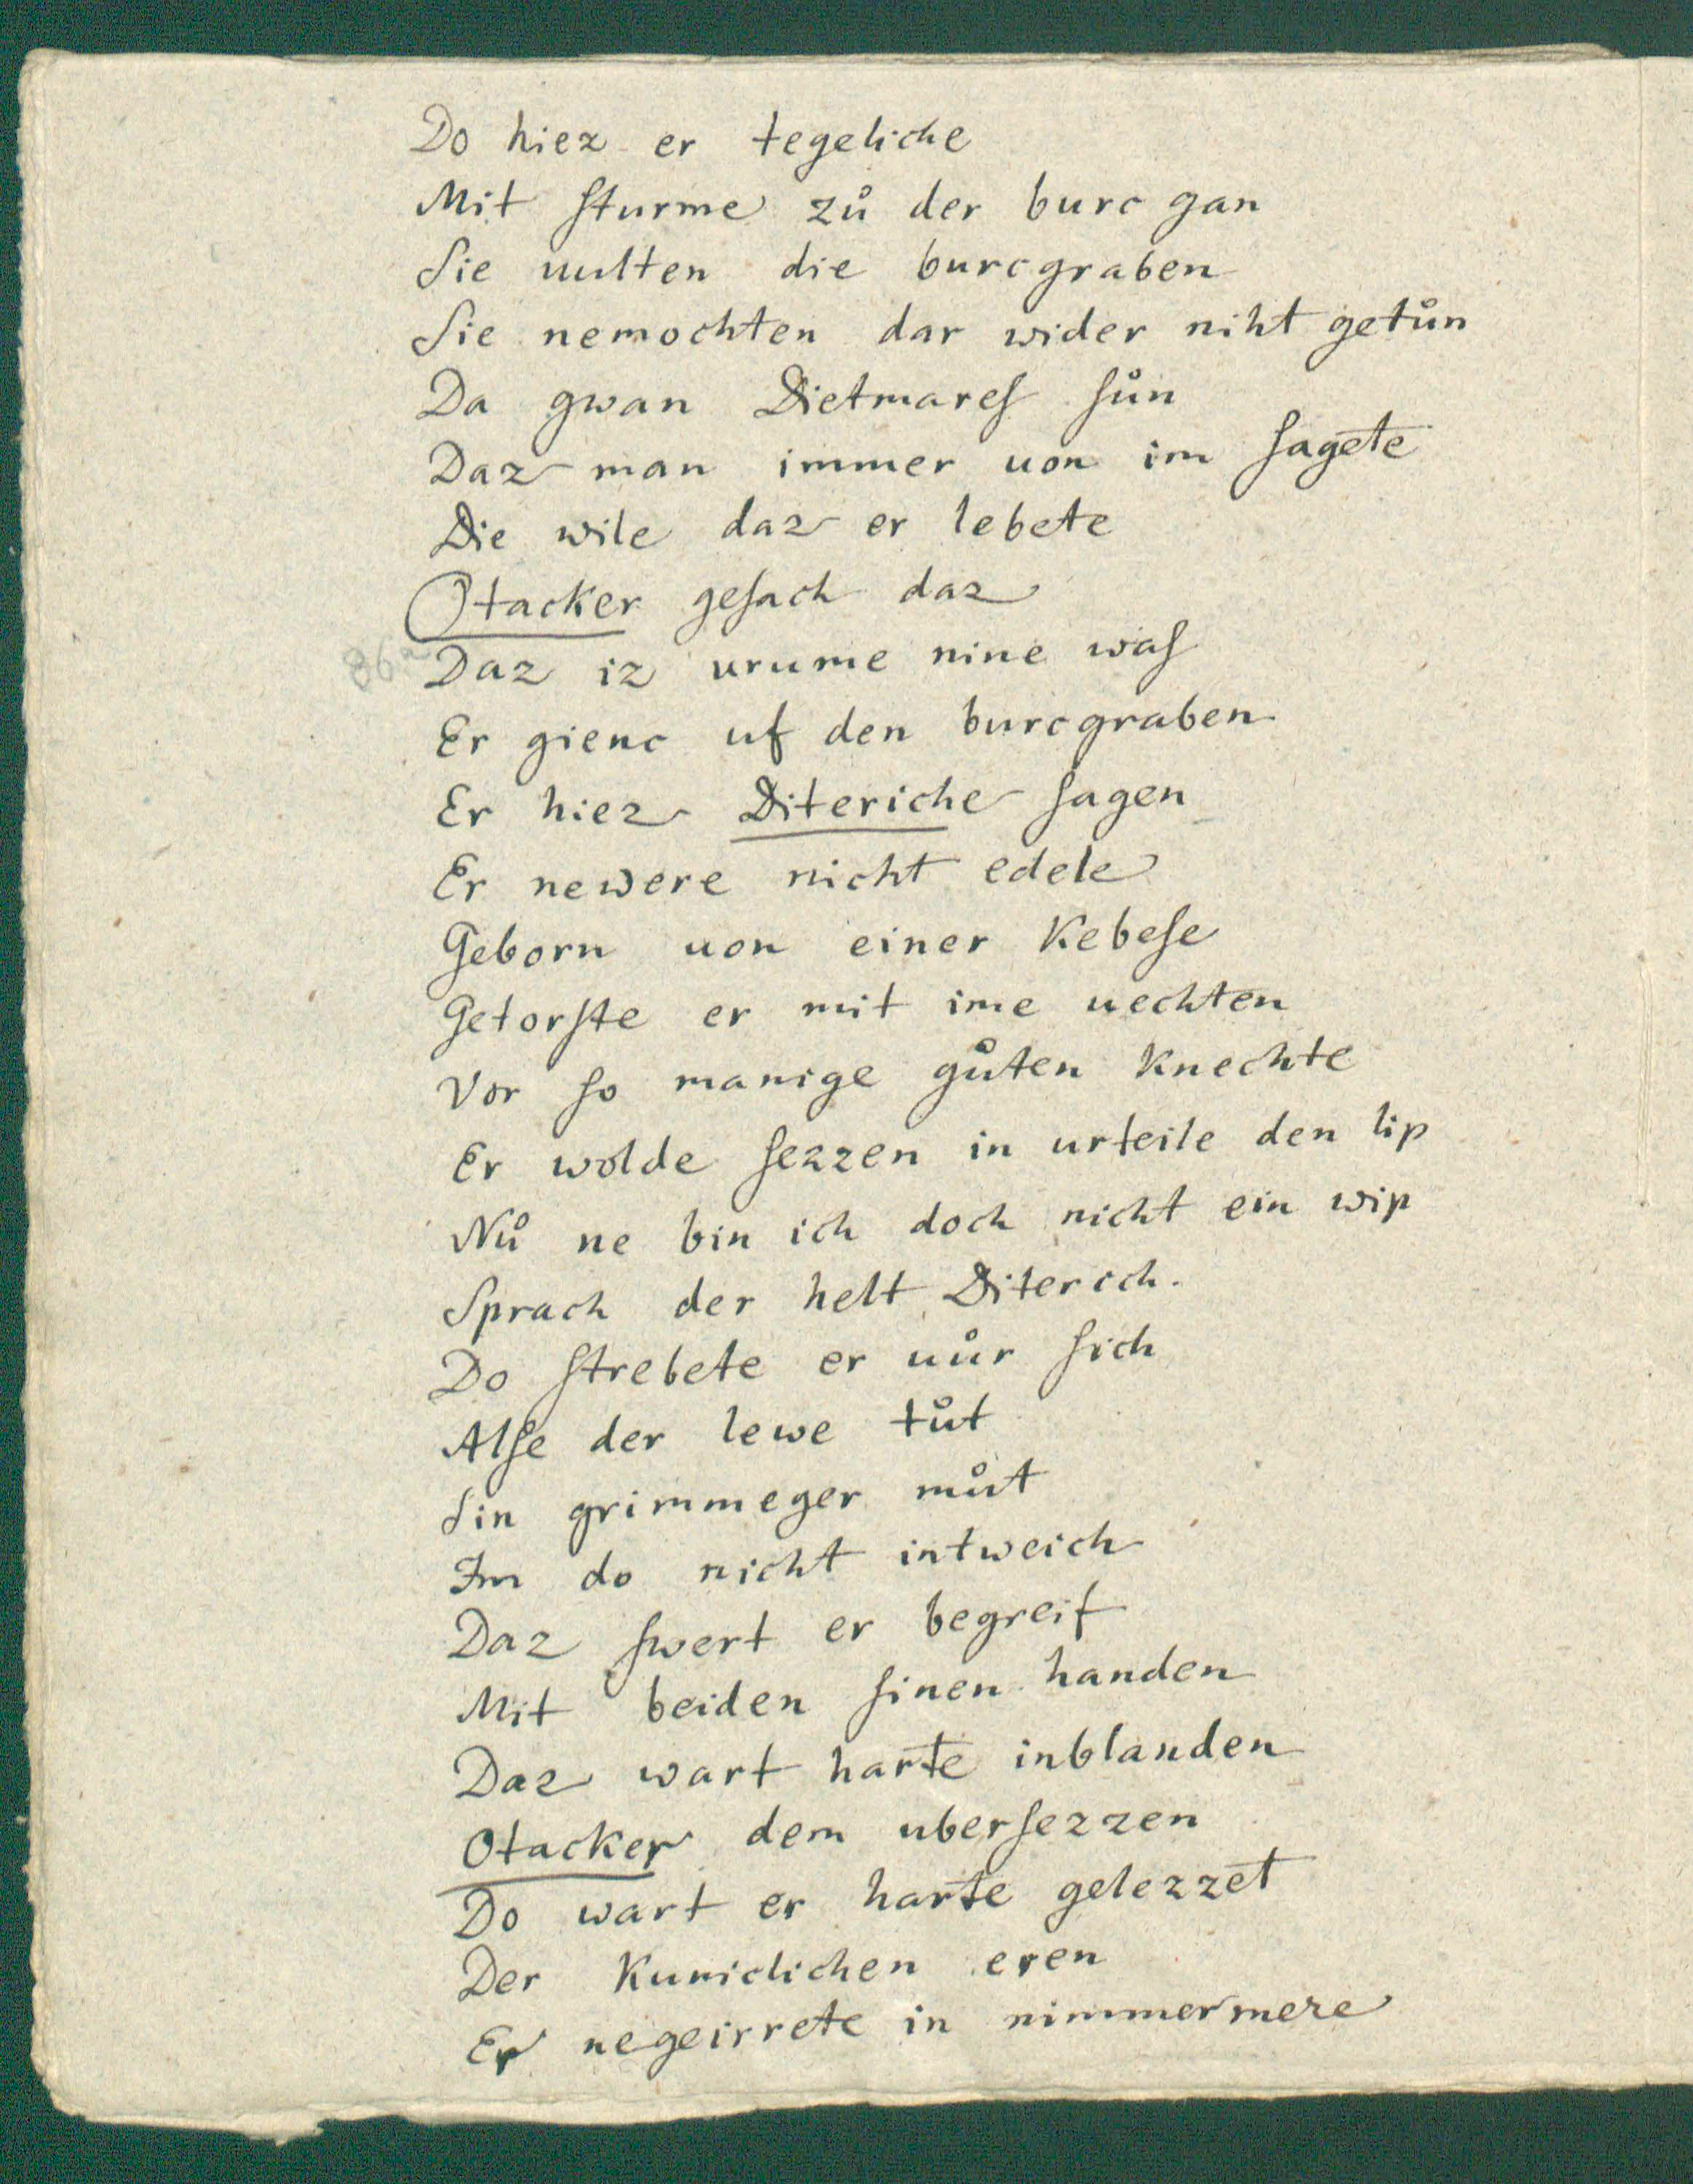 Do hiez er tegeliche
Mit ſturme zů der burc gan
Sie uulten die burcgraben
Sie nemochten dar wider niht getůn
Da gwan Dietmareſ ſůn
Daz man immer uon im ſagete
Die wile daz er lebete
Otacker geſach daz
86a Daz iz urume nine waſ
Er gienc uf den burcgraben
Er hiez Diteriche ſagen
Er newere nicht edele
Geborn uon einer Kebeſe
Getorſte er mit ime uechten
Vor ſo manige gůten Knechte
Er wolde ſezzen in urteile den lip
Nů ne bin ich doch nicht ein wip
Sprach der helt Diterich.
Do ſtrebete er uůr ſich
Alſe der lewe tůt
Sin grimmeger můt
Im do nicht intweich
Daz ſwert er begreif
Mit beiden ſinen handen
Daz wart harte inblanden
Otacker dem uberſezzen
Do wart er harte gelezzet
Der Kuniclichen eren
Er negeirrete in nimmermere